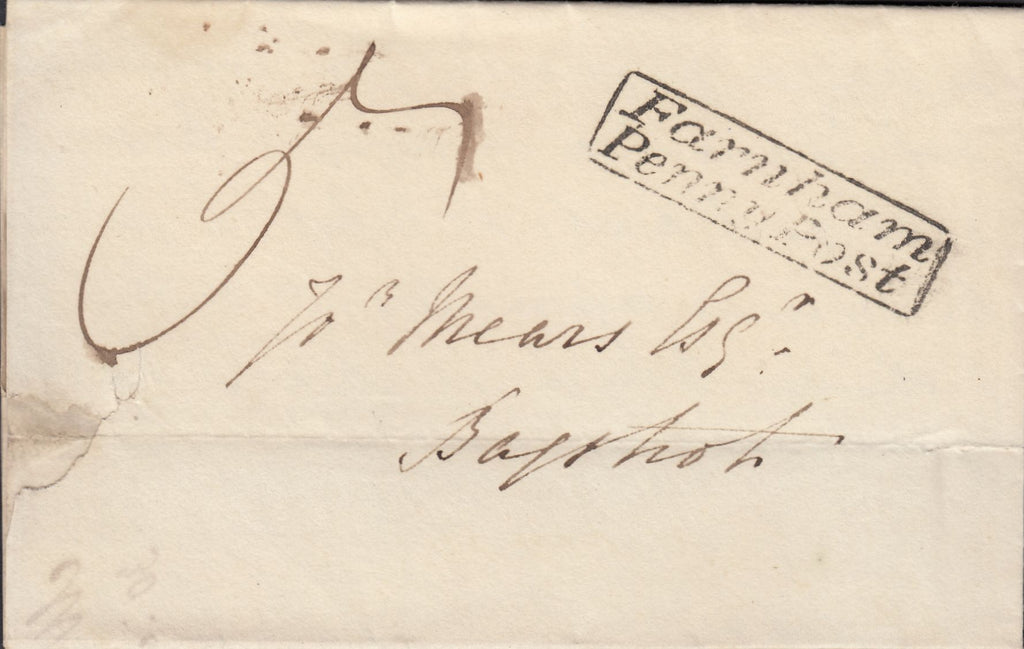 Farnham
Penny Post
Jos Mears Esqr.
Bagshot